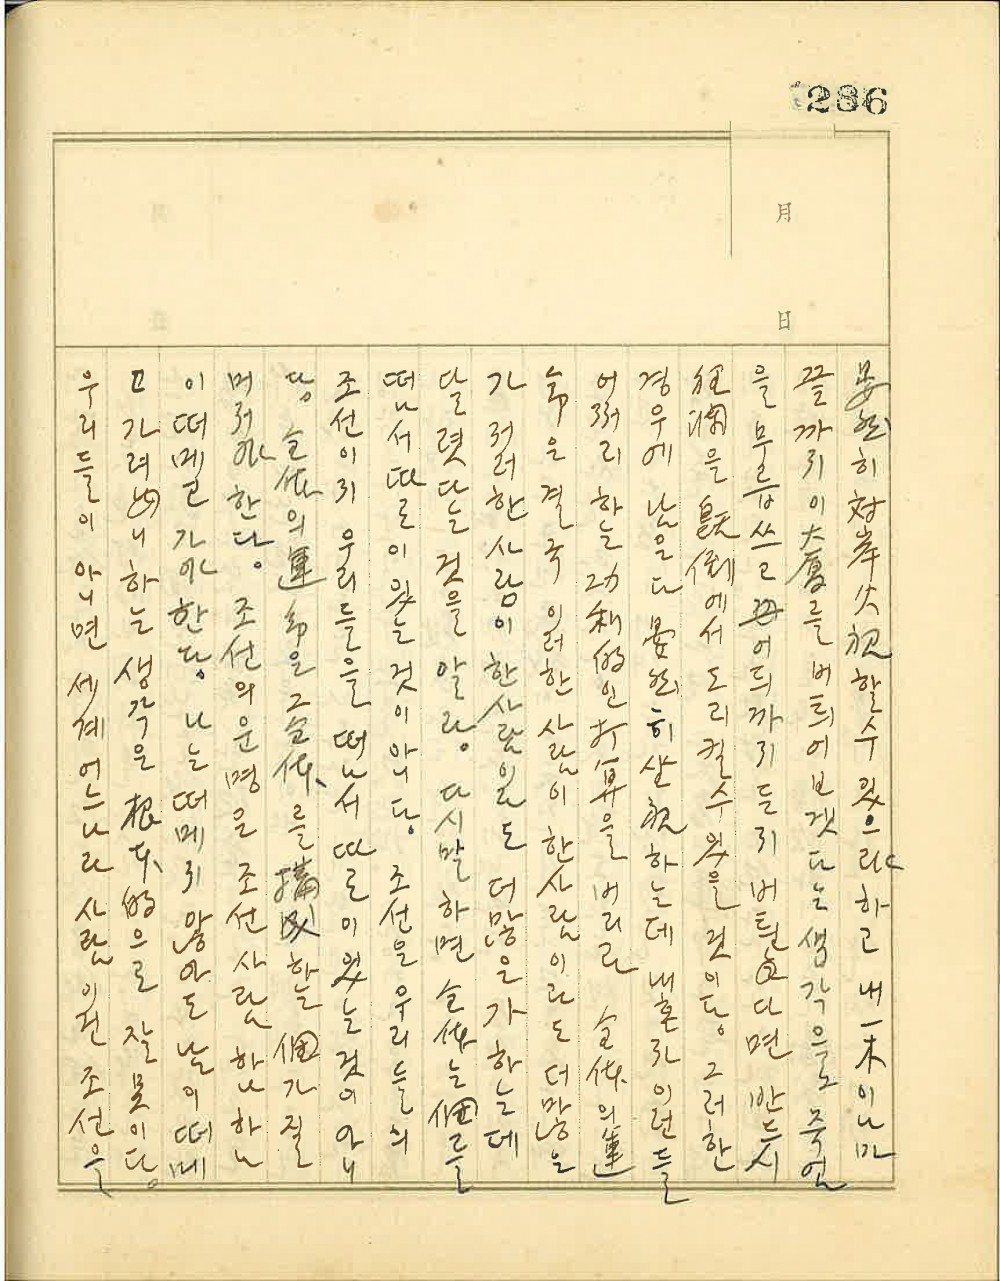 286
月
日
晏然히 対岸火視할수 있으랴하고 내 一木이나마
끝까지 이 大厦를 버틔어보겟다는 생각을로 죽엄
을 무릅쓰고 끝어듸까지든지 버틘다면 반듯시
狂瀾을 旣倒에서 도리킬수있을 것이다. 그러한
경우에 남은 다 晏然히 坐視하는데 내혼자 이런들
어쩌리 하는 功利的인 打算을 버리라 全体의 運
命은 결국 이러한 사람이 한사람이라도 더많은
가 저러한 사람이 한사람일도 더많은가 하는데
달렷다는 것을 알라. 다시말하면 全体는 個를
떠나서 따로이 있는 것이 아니다. 조선을 우리들의
조선이지 우리들을 떠나서 따로이 있는것이 아니
다. 全体의 運命은 그全体를 構成하는 個가 질
머저야 한다. 조선의 운명은 조선사람 하나하나
이 떠메고 가야한다. 나는 떠메지 않아도 남이 떠메
고 가려니 하는 생각은 根本的으로 잘못이다.
우리들이 아니면 세계 어느나라 사람이 조선을